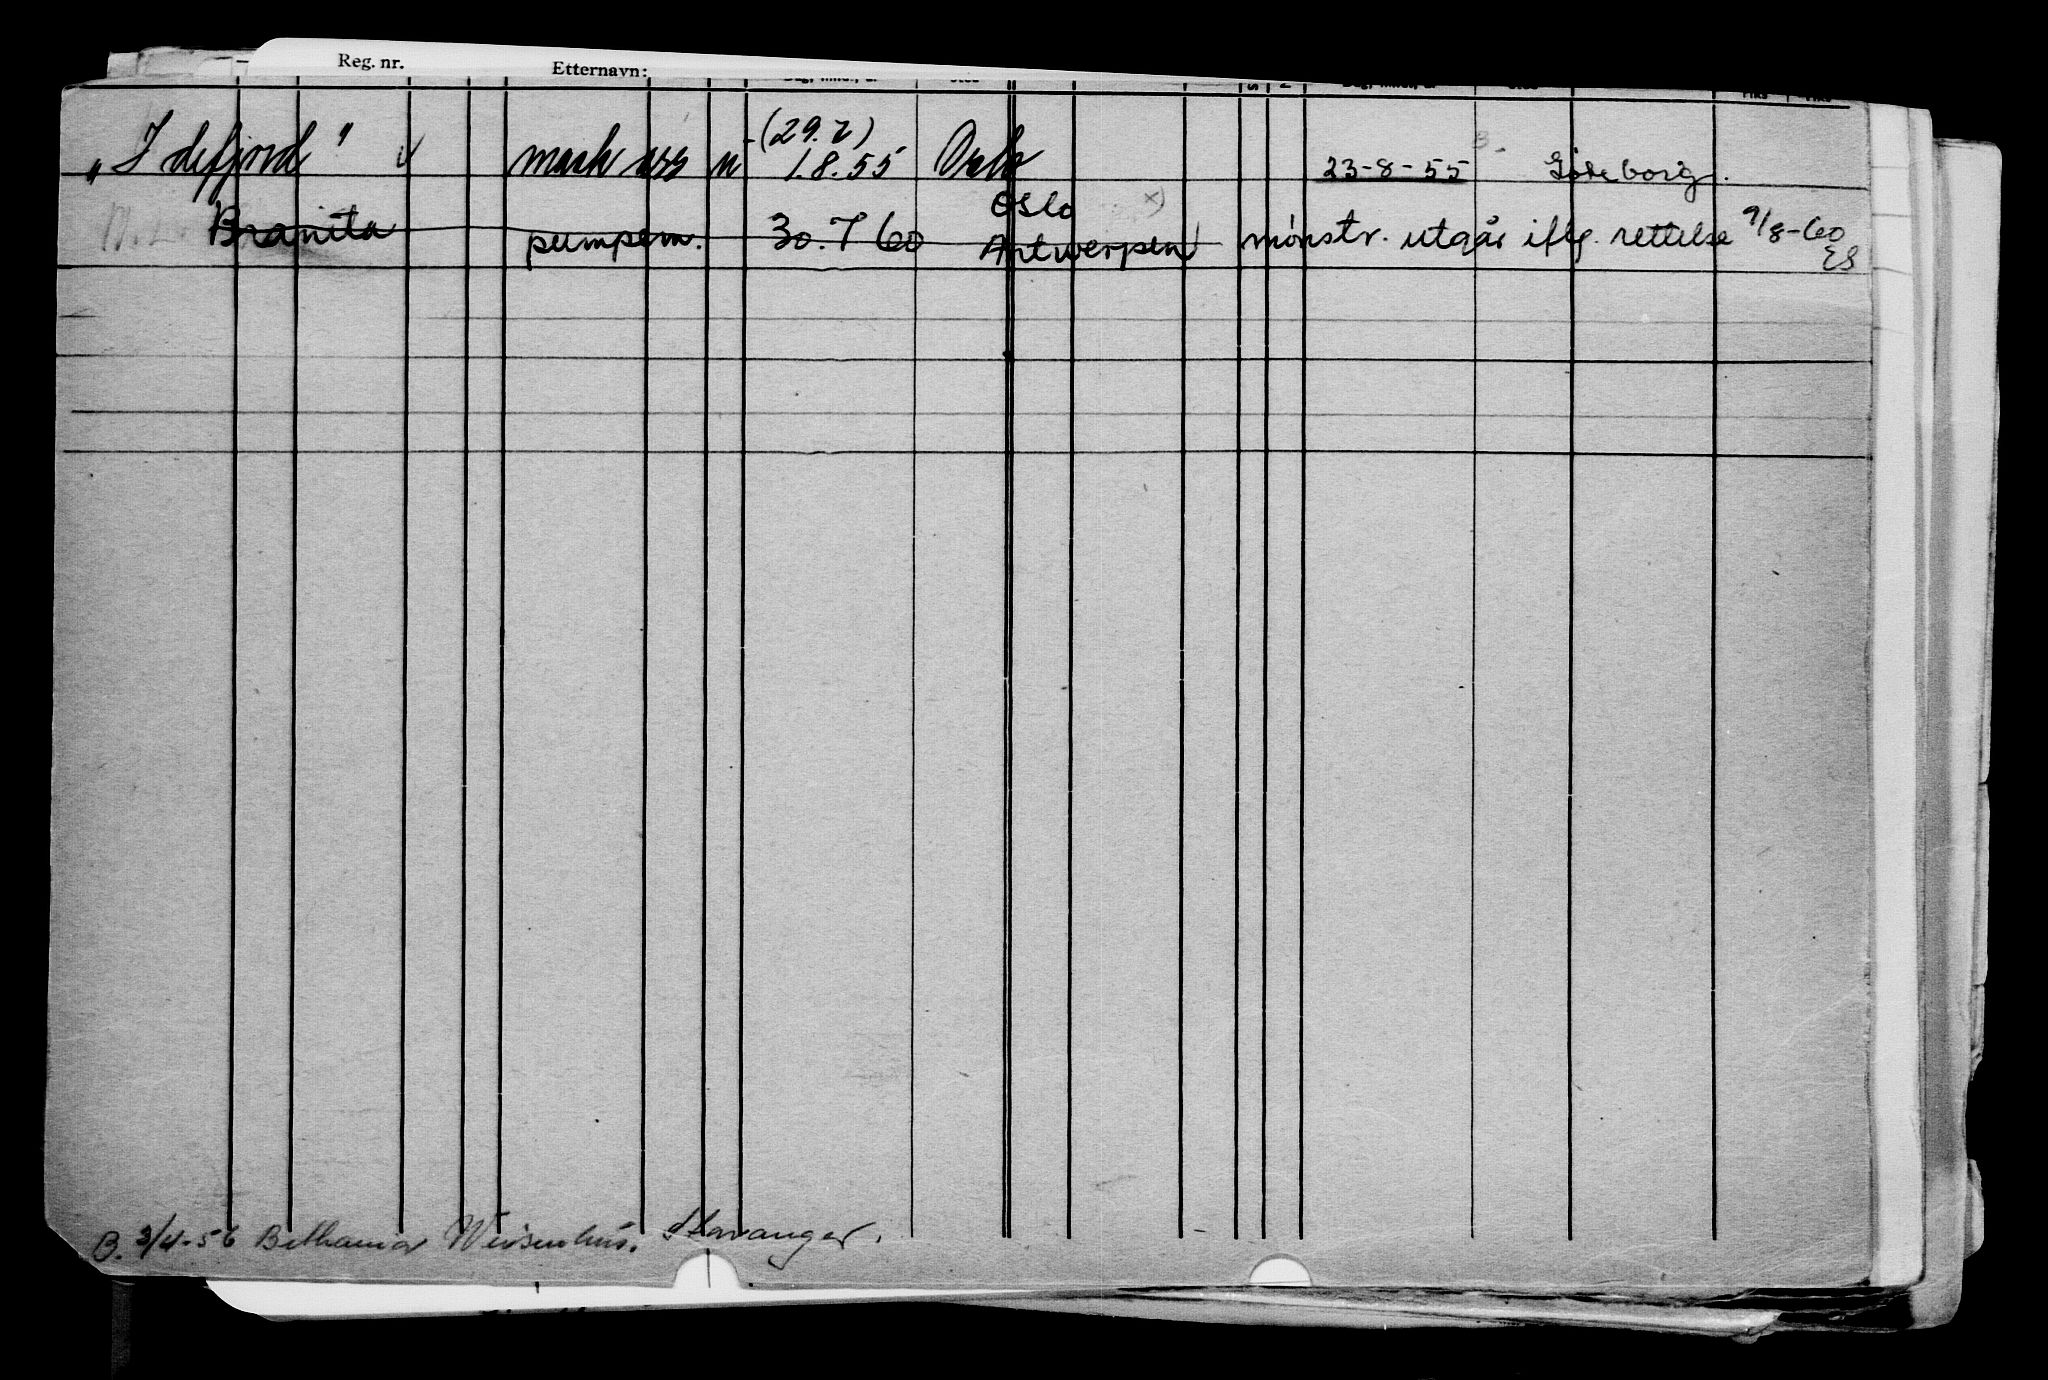 Reg. nr. Etternavn:
"Idefjord" mask ass n (29.7) 1.8.55 Oslo 23-8-55 Gøteborg.
Branita pumpem. 30.7 60 Oslo Antwerpen x) mønstr. utgår iflg. rettelse 9/8-60 ES
B. 3/4-56 Bethania Weisenhus. Stavanger.